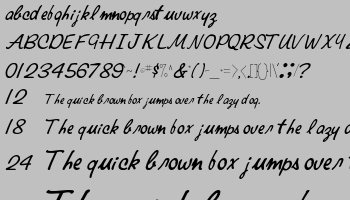 abcdefghijklmnopqrstuvwxyz
ABCDEFGHIJKLMNOPQRSTUVWXYZ
0123456789~!@#$%^&*()-_+=>,<,[]{}|\":;,/?
12 The quick brown box jumps over the lazy dog.
18 The quick brown box jumps over the lazy d
24 The quick brown box jumps over t